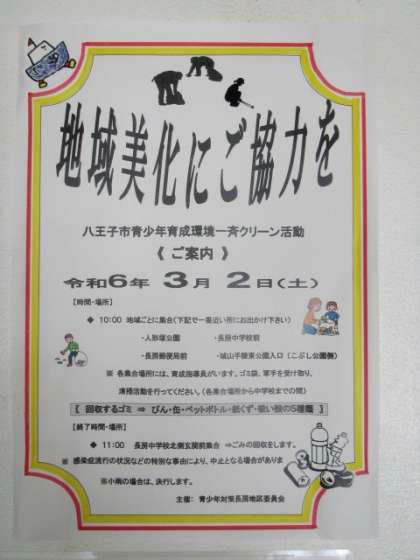 地域美化にご協力を
八王子市青少年育成環境一斉クリーン活動
《 ご案内 》
令和6年 3月 2日(土)
【時間・場所】
◆ 10:00 地域ごとに集合(下記で一番近い所にお出かけ下さい)
・人形塚公園 ・長房中学校前
・長房郵便局前 ・城山手陵東公園入口(こぶし公園側)
※ 各集合場所には、育成指導員がいます。ゴミ袋、軍手を受け取り、
清掃活動を行ってください。(各集合場所から中学校までの間)
【 回収するゴミ ⇒ びん・缶・ペットボトル・紙くず・吸い殻の5種類 】
【終了時間・場所】
◆ 11:00 長房中学校北側玄関前集合 ⇒ごみの回収をします。
※ 感染症流行の状況などの特別な事由により、中止となる場合がありま
※小雨の場合は、決行します。
主催: 青少年対策長房地区委員会